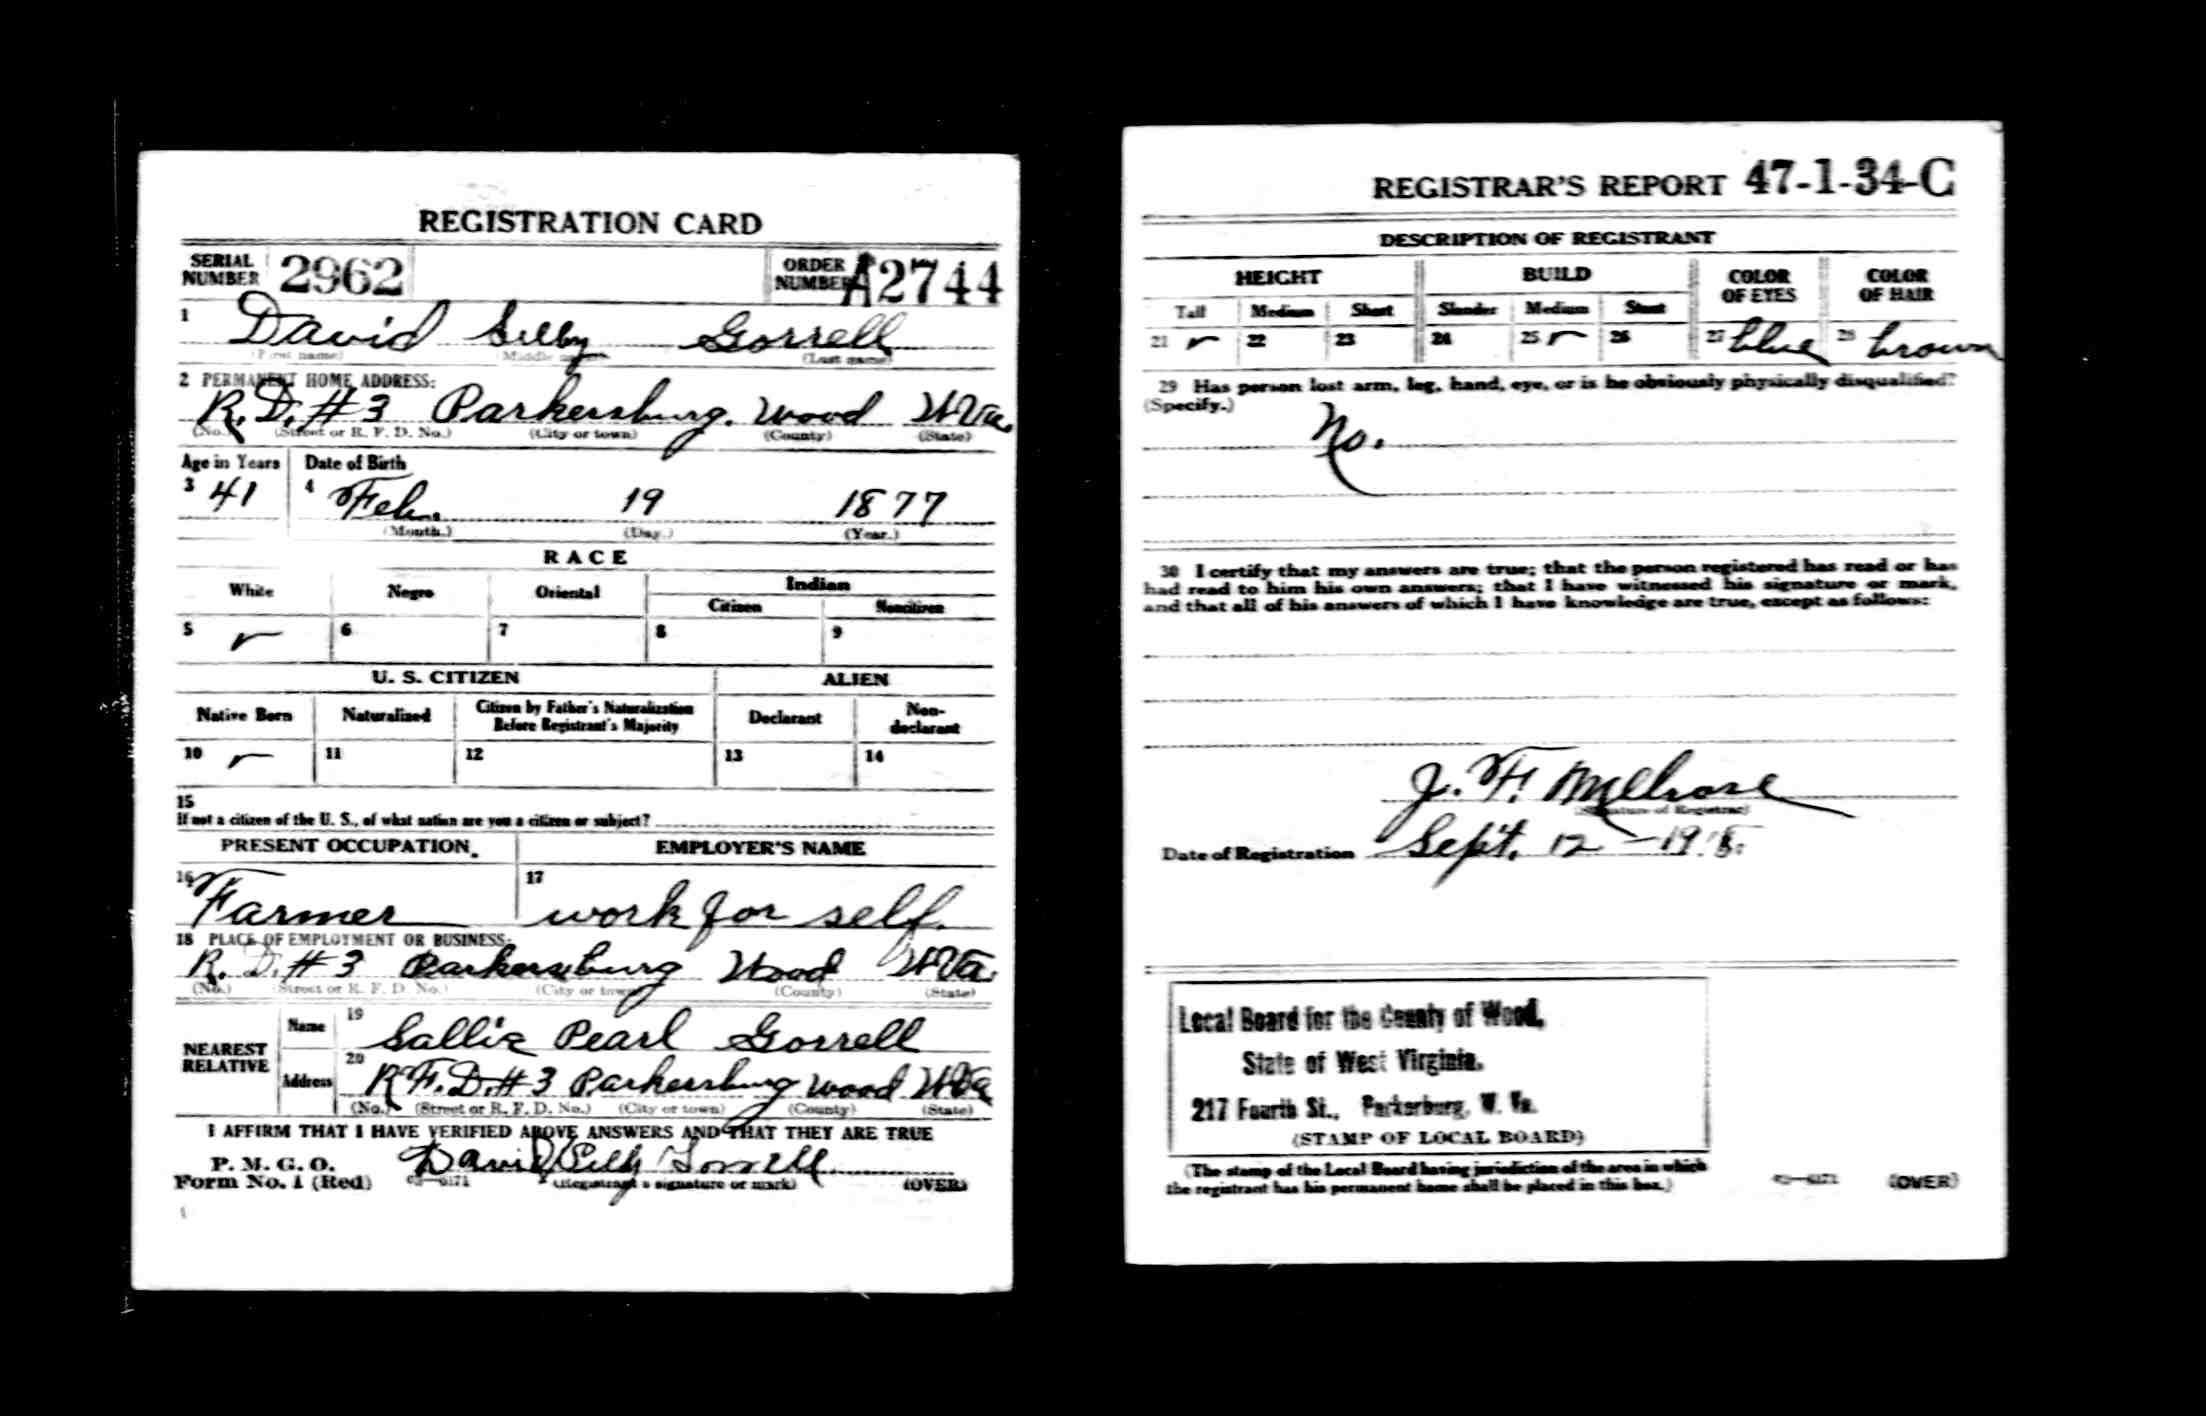 REGISTRATION CARD
SERIAL NUMBER 2962 ORDER NUMBER A2744
1 David Silby Gorrell
(First name) (Middle name) (Last name)
2 PERMANENT HOME ADDRESS:
R.D.#3 Parkersburg. Wood W.Va.
(No.) (Street or R. F. D. No.) (City or town) (County) (State)
Age in Years Date of Birth
3 41 4 Feb. 19 1877
(Month.) (Day.) (Year.)
RACE
White Negro Oriental Indian
Citizen Noncitizen
5 ✓ 6 7 8 9
U. S. CITIZEN ALIEN
Native Born Naturalized Citizen by Father's Naturalization Before Registrant's Majority Declarant Non-declarant
10 ✓ 11 12 13 14
15
If not a citizen of the U. S., of what nation are you a citizen or subject?
PRESENT OCCUPATION EMPLOYER'S NAME
16 Farmer 17 work for self.
18 PLACE OF EMPLOYMENT OR BUSINESS:
R. D.#3 Parkersburg Wood W.Va.
(No.) (Street or R. F. D. No.) (City or town) (County) (State)
NEAREST RELATIVE Name 19 Sallie Pearl Gorrell
Address 20 R.F.D.#3 Parkersburg Wood W.Va
(No.) (Street or R. F. D. No.) (City or town) (County) (State)
I AFFIRM THAT I HAVE VERIFIED ABOVE ANSWERS AND THAT THEY ARE TRUE
P. M. G. O.
Form No. 1 (Red) David Silby Gorrell
03—6171 (Registrant's signature or mark) (OVER)
REGISTRAR'S REPORT 47-1-34-C
DESCRIPTION OF REGISTRANT
HEIGHT BUILD COLOR OF EYES COLOR OF HAIR
Tall Medium Short Slender Medium Stout
21 ✓ 22 23 24 25 ✓ 26 27 blue 28 brown
29 Has person lost arm, leg, hand, eye, or is he obviously physically disqualified?
(Specify.)
No.
30 I certify that my answers are true; that the person registered has read or has
had read to him his own answers; that I have witnessed his signature or mark,
and that all of his answers of which I have knowledge are true, except as follows:
J. F. Melrose
(Signature of Registrar)
Date of Registration Sept. 12 - 1918.
Local Board for the County of Wood,
State of West Virginia.
217 Fourth St., Parkerburg, W. Va.
(STAMP OF LOCAL BOARD)
(The stamp of the Local Board having jurisdiction of the area in which
the registrant has his permanent home shall be placed in this box.)
03—6171 (OVER)